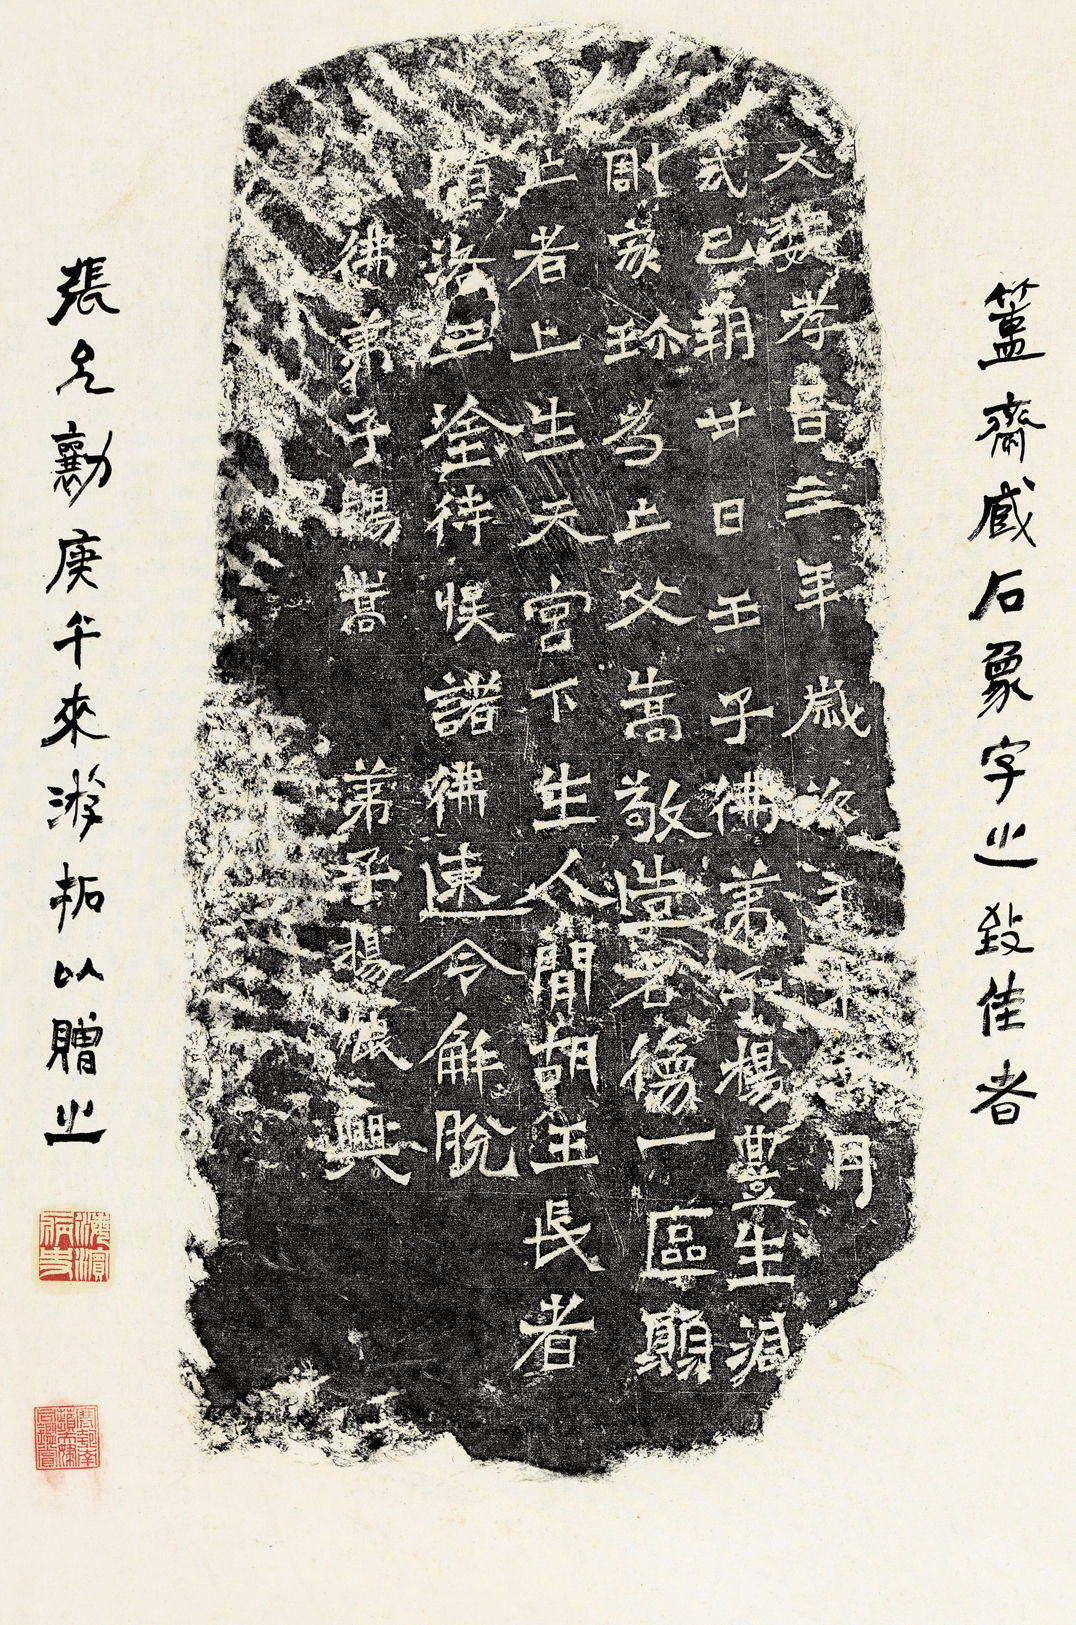 簠齋臧石象字之致佳者
大魏孝昌三年歲次丁未月
弍己朔廿日壬子佛弟子楊豐生減
割家珎為亡父嵩敬造石像一區願
亡者上生天宮下生人間胡王長者
墮洛三塗待候諾佛速令解脫
佛弟子暢嵩 弟子楊振興
張允勷庚午來游拓以贈之
濰濱病史